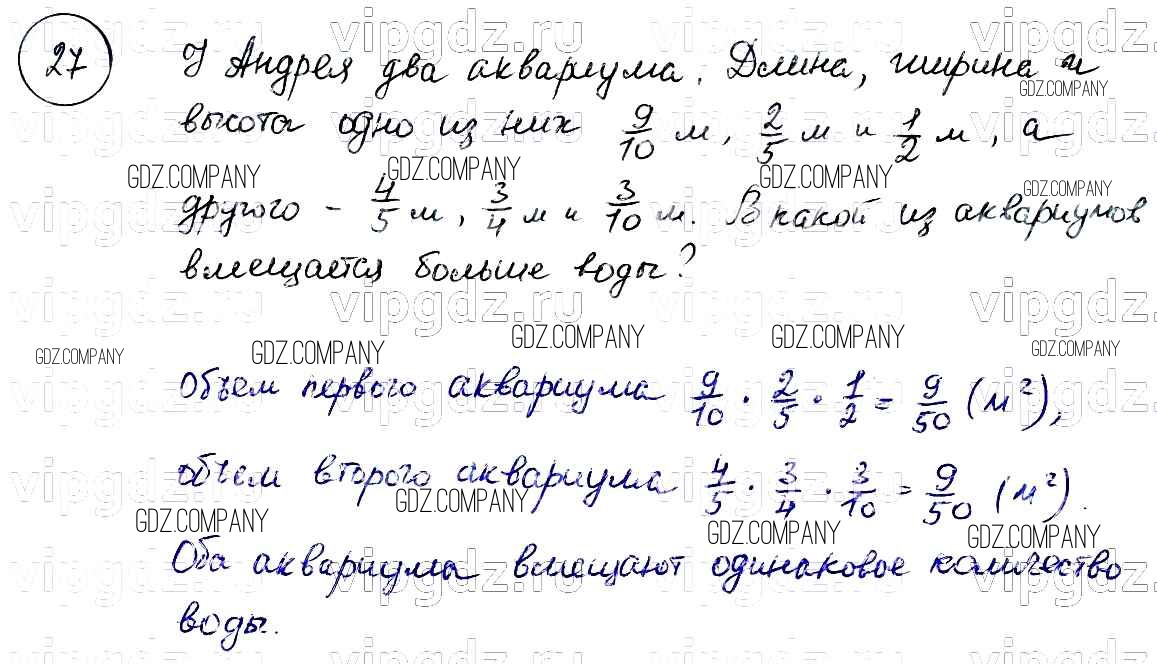 27 У Андрея два аквариума. Длина, ширина и
высота одно из них 9/10 м, 2/5 м и 1/2 м, а
другого - 4/5 м, 3/4 м и 3/10 м. В какой из аквариумов
вмещается больше воды?
Объем первого аквариума 9/10 · 2/5 · 1/2 = 9/50 (м²),
объем второго аквариума 4/5 · 3/4 · 3/10 = 9/50 (м²).
Оба аквариума вмещают одинаковое количество
воды.
vipgdz.ru
GDZ.COMPANY